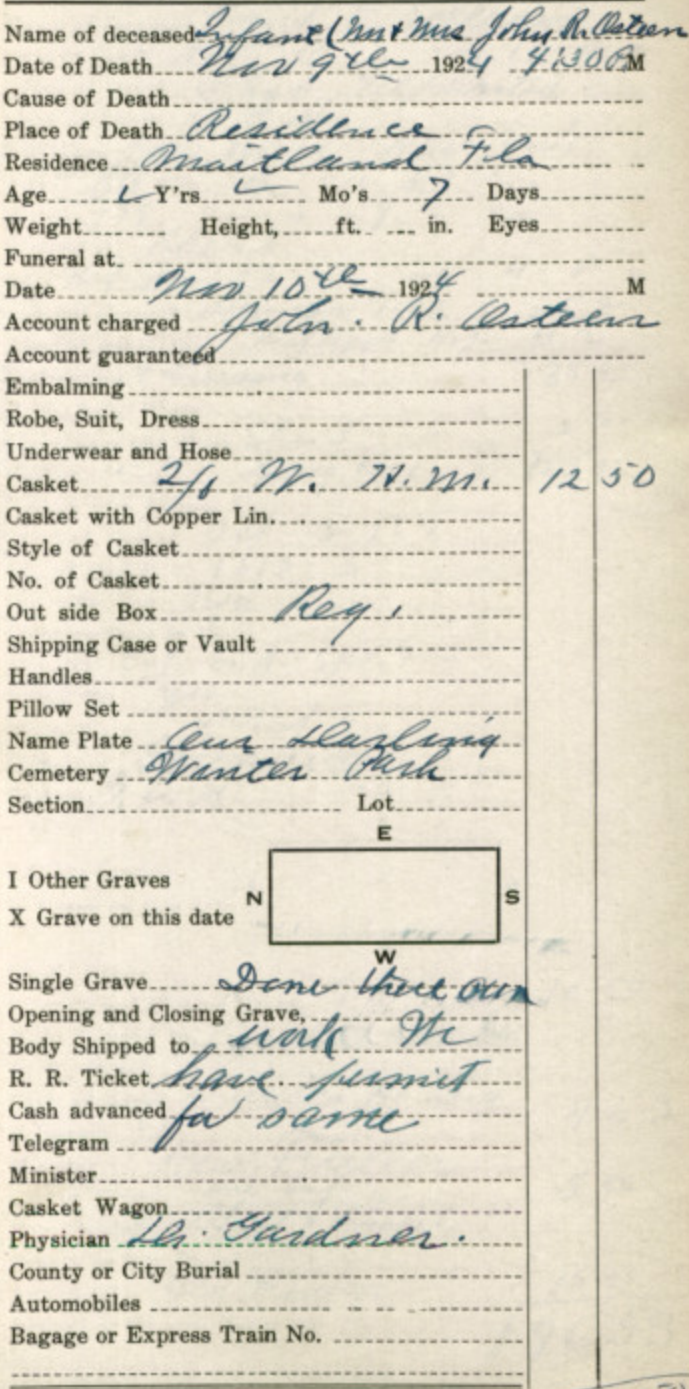 Name of deceased Infant (Mr + Mrs John R. Osteen
Date of Death Nov 9th 1924 4:30 P M
Cause of Death
Place of Death Residence
Residence Maitland Fla
Age Y'rs Mo's 7 Days
Weight Height, ft. in. Eyes
Funeral at
Date Nov 10th 1924 M
Account charged John. R. Osteen
Account guaranteed
Embalming
Robe, Suit, Dress
Underwear and Hose
Casket W. H. M. 12 50
Casket with Copper Lin.
Style of Casket
No. of Casket
Out side Box Reg.
Shipping Case or Vault
Handles
Pillow Set
Name Plate Our Darling
Cemetery Winter Park
Section Lot
E
I Other Graves
N S
X Grave on this date
W
Single Grave Done their own
Opening and Closing Grave,
Body Shipped to work We
R. R. Ticket have permit
Cash advanced for same
Telegram
Minister
Casket Wagon
Physician Dr. Gardner.
County or City Burial
Automobiles
Bagage or Express Train No.